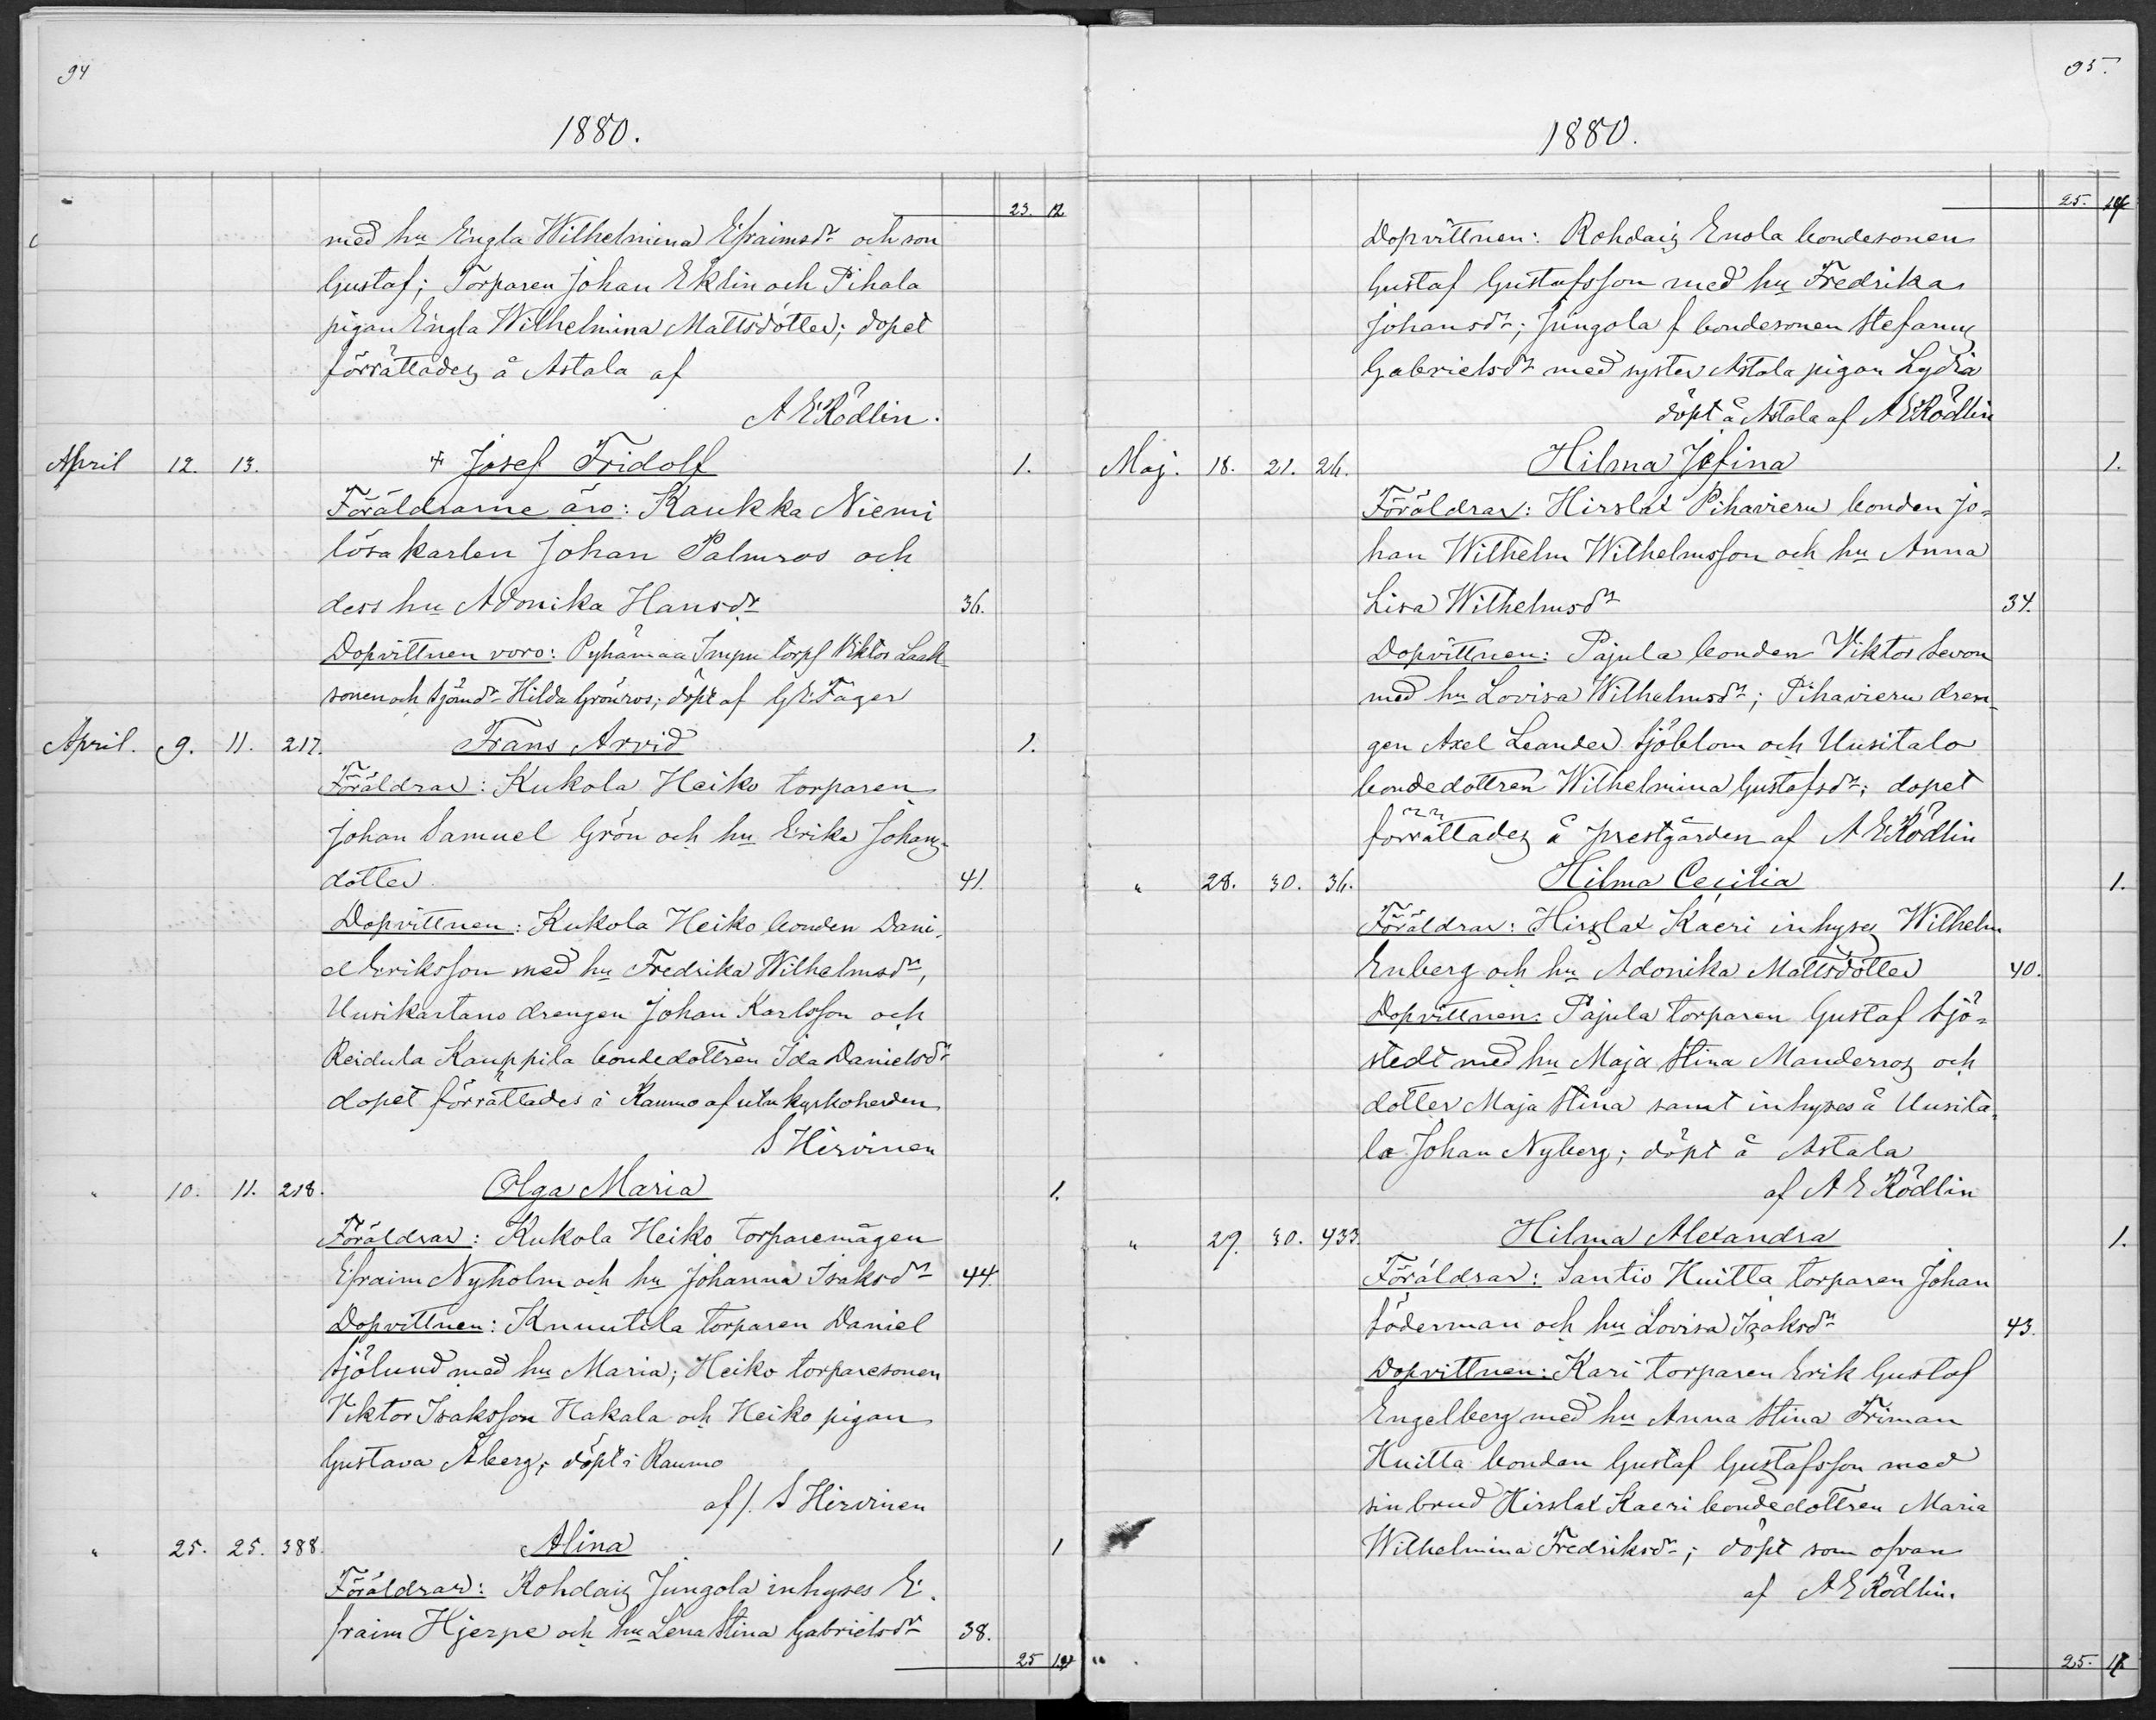 94
1880.
23. 12
med hu Engla Wilhelmina Efraimsdr och son
Gustaf; Torparen Johan Eklin och Pihala
pigan Engla Wilhelmina Mattsdotter; dopet
förrättades å Astala af
A E Rödlin.
April 12. 13. + Josef Fridolf 1.
Föräldrarne äro: Kaukka Niemi
lösakarlen Johan Palmros och
dess hu Adonika Hansdr 36.
Dopvittnen voro: Pyhämaa Impu torpf Viktor Laak-
sonen och sjömdr Hilda Grönros; döpt af G E Fager
April. 9. 11. 217. Frans Arvid 1.
Föräldrar: Kukola Heiko torparen
Johan Samuel Grön och hu Erika Johans-
dotter 41.
Dopvittnen: Kukola Heiko bonden Dani-
el Eriksson med hu Fredrika Wilhelmsdr,
Uusikartano drengen Johan Karlsson och
Reidula Kauppila bondedottren Ida Danielsdr
dopet förrättades i Raumo af kyrkoherden
S Hirvinen
" 10. 11. 218. Olga Maria 1.
Föräldrar: Kukola Heiko torparemågen
Efraim Nyholm och hu Johanna Isaksdr 44.
Dopvittnen: Knuutila torparen Daniel
Sjölund med hu Maria; Heiko torparesonen
Viktor Isaksson Hakala och Heiko pigan
Gustava Åberg; döpt i Raumo
af J. S Hirvinen
" 25. 25. 388. Alina 1
Föräldrar: Rohdais Jungola inhyses E-
fraim Hjerpe och hu Lena Stina Gabrielsdr 38.
25
95.
1880.
25.
Dopvittnen: Rohdais Ensla bondesonen
Gustaf Gustafsson med hu Fredrika
Johansdr; Jungola f bondesonen Stefanus
Gabrielsdr med syster Astala pigan Lydia
döpt å Astala af A E Rödlin
Maj. 18. 21. 26. Hilma Jefina 1.
Föräldrar: Hirslax Pihavieru bonden Jo-
han Wilhelm Wilhelmsson och hu Anna
Lisa Wilhelmsdr 34.
Dopvittnen: Pajula bonden Viktor Levon
med hu Lovisa Wilhelmsdr; Pihavieru dren-
gen Axel Leander Sjöblom och Uusitalo
bondedottren Wilhelmina Gustafsdr; dopet
förrättades å prestgården af A E Rödlin
" 28. 30. 36. Hilma Cecilia 1.
Föräldrar: Hirslax Kaeri inhyses Wilhelm
Enberg och hu Adonika Mattsdotter 40.
Dopvittnen: Pajula torparen Gustaf Sjö-
stedt med hu Maja Stina Manderros och
dotter Maja Stina samt inhyses å Uusita-
lo Johan Nyberg; döpt å Astala
af A E Rödlin
" 29. 30. 433. Hilma Alexandra 1.
Föräldrar: Santio Huitta torparen Johan
Söderman och hu Lovisa Isaksdr 43.
Dopvittnen: Kari torparen Erik Gustaf
Engelberg med hu Anna Stina Friman
Huitta bonden Gustaf Gustafsson med
sin brud Hirslax Kaeri bondedottren Maria
Wilhelmina Fredriksdr; döpt som ofvan
af A E Rödlin.
25.